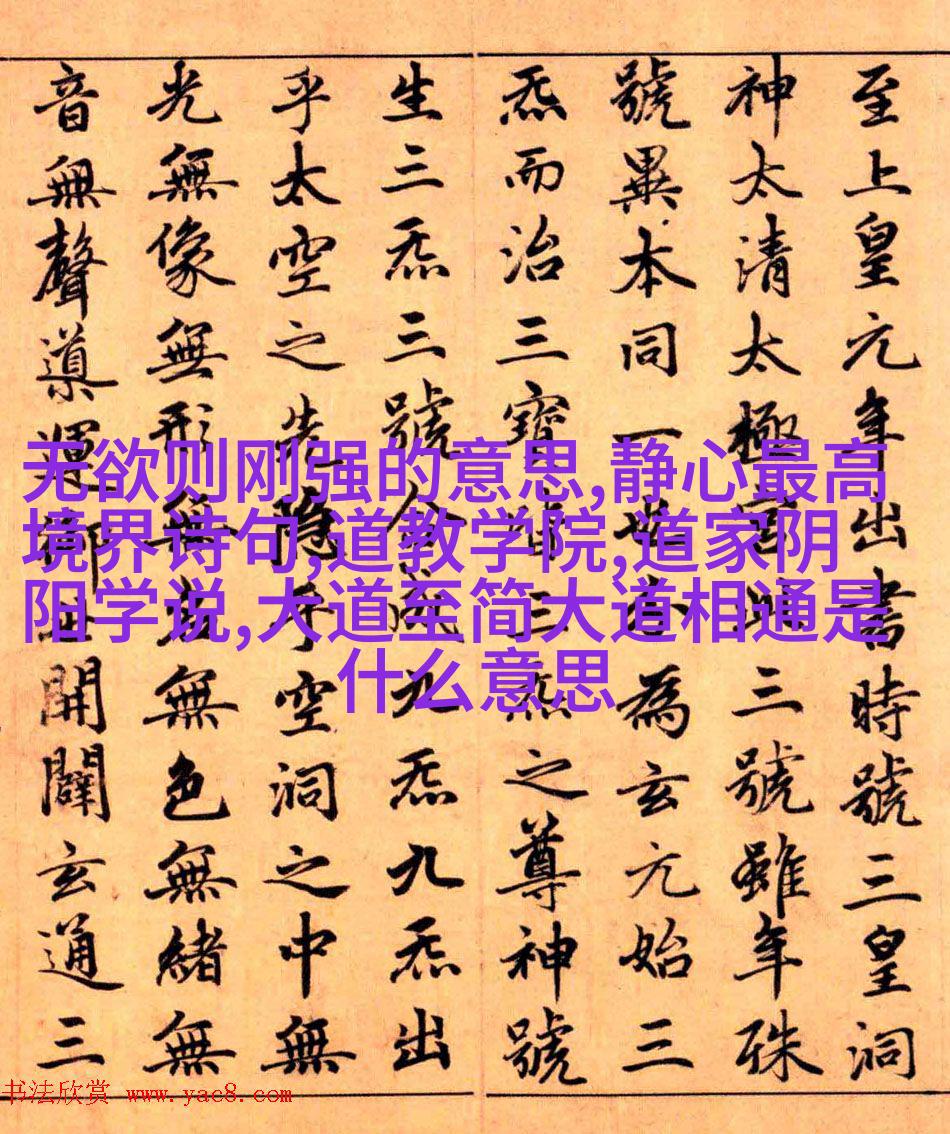 至上皇元年出書時號三皇洞
神太清太極宮此三號雖年殊
號異本同一也分為玄元始三
炁而治三寶皆三炁之尊神號
生三炁三號合成九炁九炁出
乎太空之先隱乎空洞之中無
光無像無形無名無色無緒無
音無聲導運御世開闢玄通三
无欲则刚强的意思,静心最高
境界诗句,道教学院,道家阴
阳学说,大道至简大道相通是
什么意思
书法欣赏 www.yac8.com